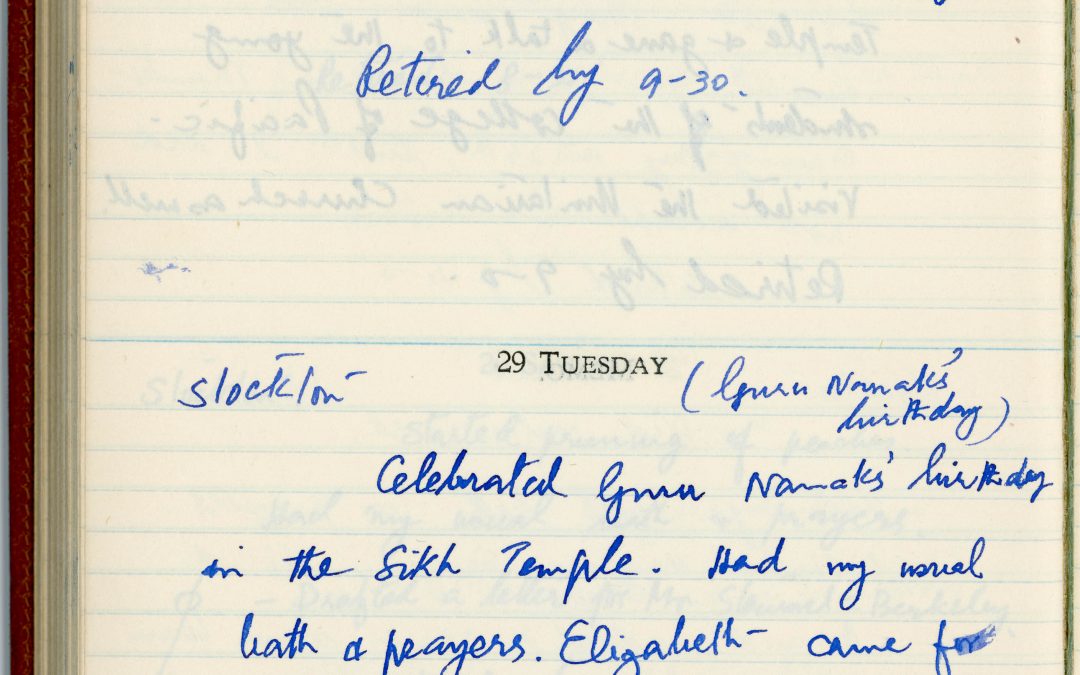 Retired by 9-30.
29 TUESDAY
Stockton (Guru Nanak's
birthday)
Celebrated Guru Nanak's birthday
in the Sikh Temple. Had my usual
bath & prayers. Elizabeth came for